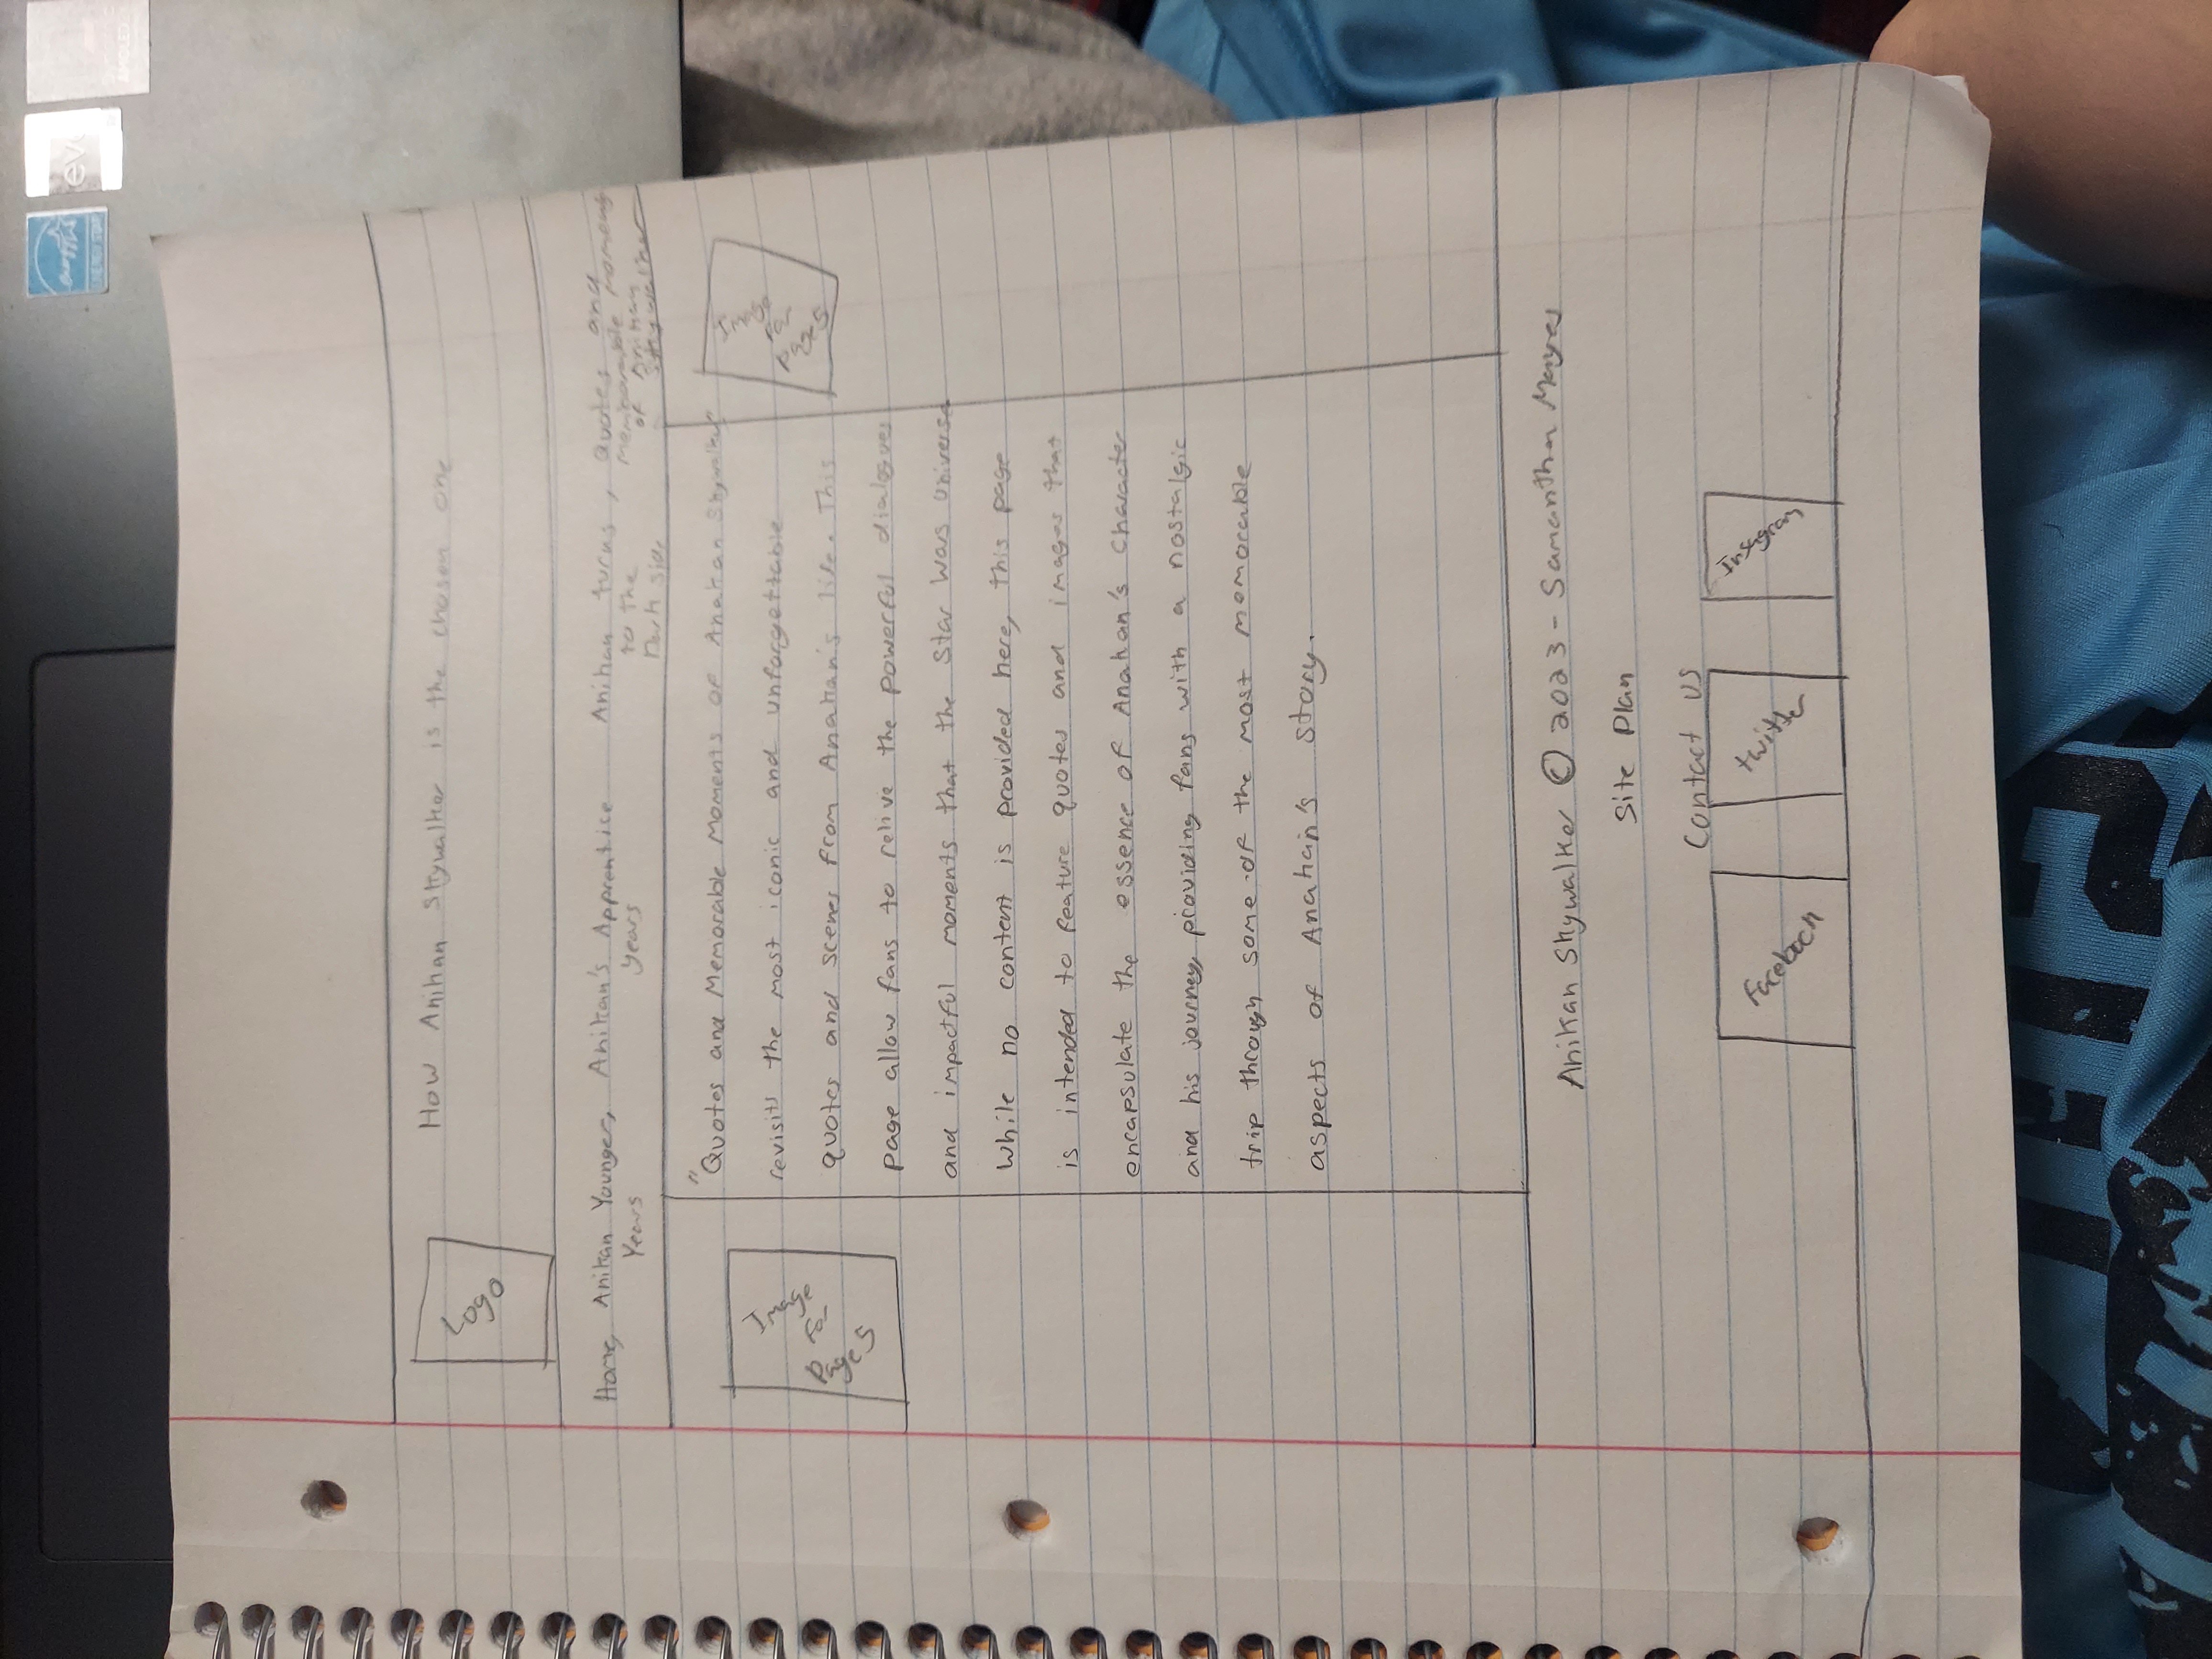 ENERGY STAR
evo
AMOLED
How Anikan Skywalker is the chosen one
Logo
Home, Anikan Younger, Anikan's Apprentice Anikan turns , Quotes and
Years years to the Memorable Moments
Dark side of Anikan
Skywalker
"Quotes and Memorable Moments of Anakan Skywalker"
revisits the most iconic and unforgettable
quotes and scenes from Anakan's life. This
page allow fans to relive the powerful dialogues
and impactful moments that the Star Wars universe
While no content is provided here, this page
is intended to feature quotes and images that
encapsulate the essence of Anakan's Character
and his journey, providing fans with a nostalgic
trip through some of the most memorable
aspects of Anakan's story.
Image
for
pages
Image
for
pages
Anikan Skywalker © 2023 - Samantha Mayes
Site Plan
Contact us
Facebook
twitter
Instagram